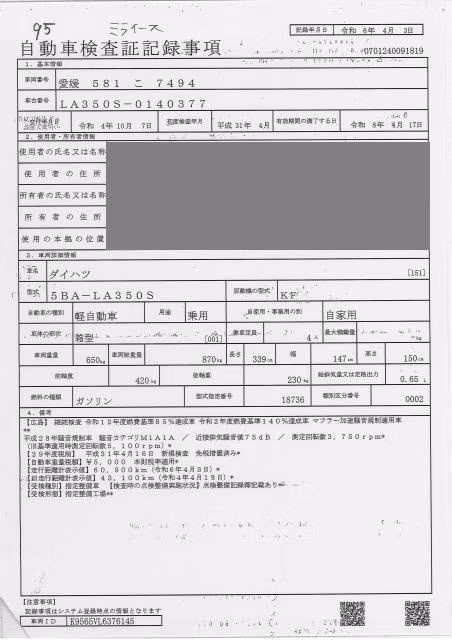 95 ミライース
記録年月日 令和 6年 4月 3日
自動車検査証記録事項
0701240091819
1. 基本情報
車両番号 愛媛 581 こ 7494
車台番号 LA350S-0140377
令和 4年10月 7日 初度検査年月 平成31年 4月 有効期間の満了する日 令和 8年 4月 17日
2. 使用者・所有者情報
使用者の氏名又は名称
使用者の住所
所有者の氏名又は名称
所有者の住所
使用の本拠の位置
3. 車両詳細情報
車名 ダイハツ [151]
型式 5BA-LA350S 原動機の型式 KF
自動車の種別 軽自動車 用途 乗用 自家用・事業用の別 自家用
車体の形状 箱型 [001] 乗車定員 4人 最大積載量 kg
車両重量 650kg 車両総重量 870kg 長さ 339cm 幅 147cm 高さ 150cm
前軸重 420kg 後軸重 230kg 総排気量又は定格出力 0.65 L
燃料の種類 ガソリン 型式指定番号 18736 類別区分番号 0002
4. 備考
【広島】 継続検査 令和12年度燃費基準85%達成車 令和2年度燃費基準140%達成車 マフラー加速騒音規制適用車
**
平成28年騒音規制車 騒音カテゴリM1A1A / 近接排気騒音値75dB / 測定回転数3,750rpm*
(旧基準適用時測定回転数5,100rpm)*
【29年度税制】 平成31年4月16日 新規検査 免税措置済み*
【自動車重量税額】¥5,000 本則税率適用*
【走行距離計表示値】60,900km(令和6年4月3日)*
【旧走行距離計表示値】43,100km(令和4年4月18日)*
【受検種別】指定整備車 【検査時の点検整備実施状況】点検整備記録簿記載あり*
【受検形態】指定整備工場**
【注意事項】
記録事項はシステム登録時点の情報となります
車両ID K9565VL6376145